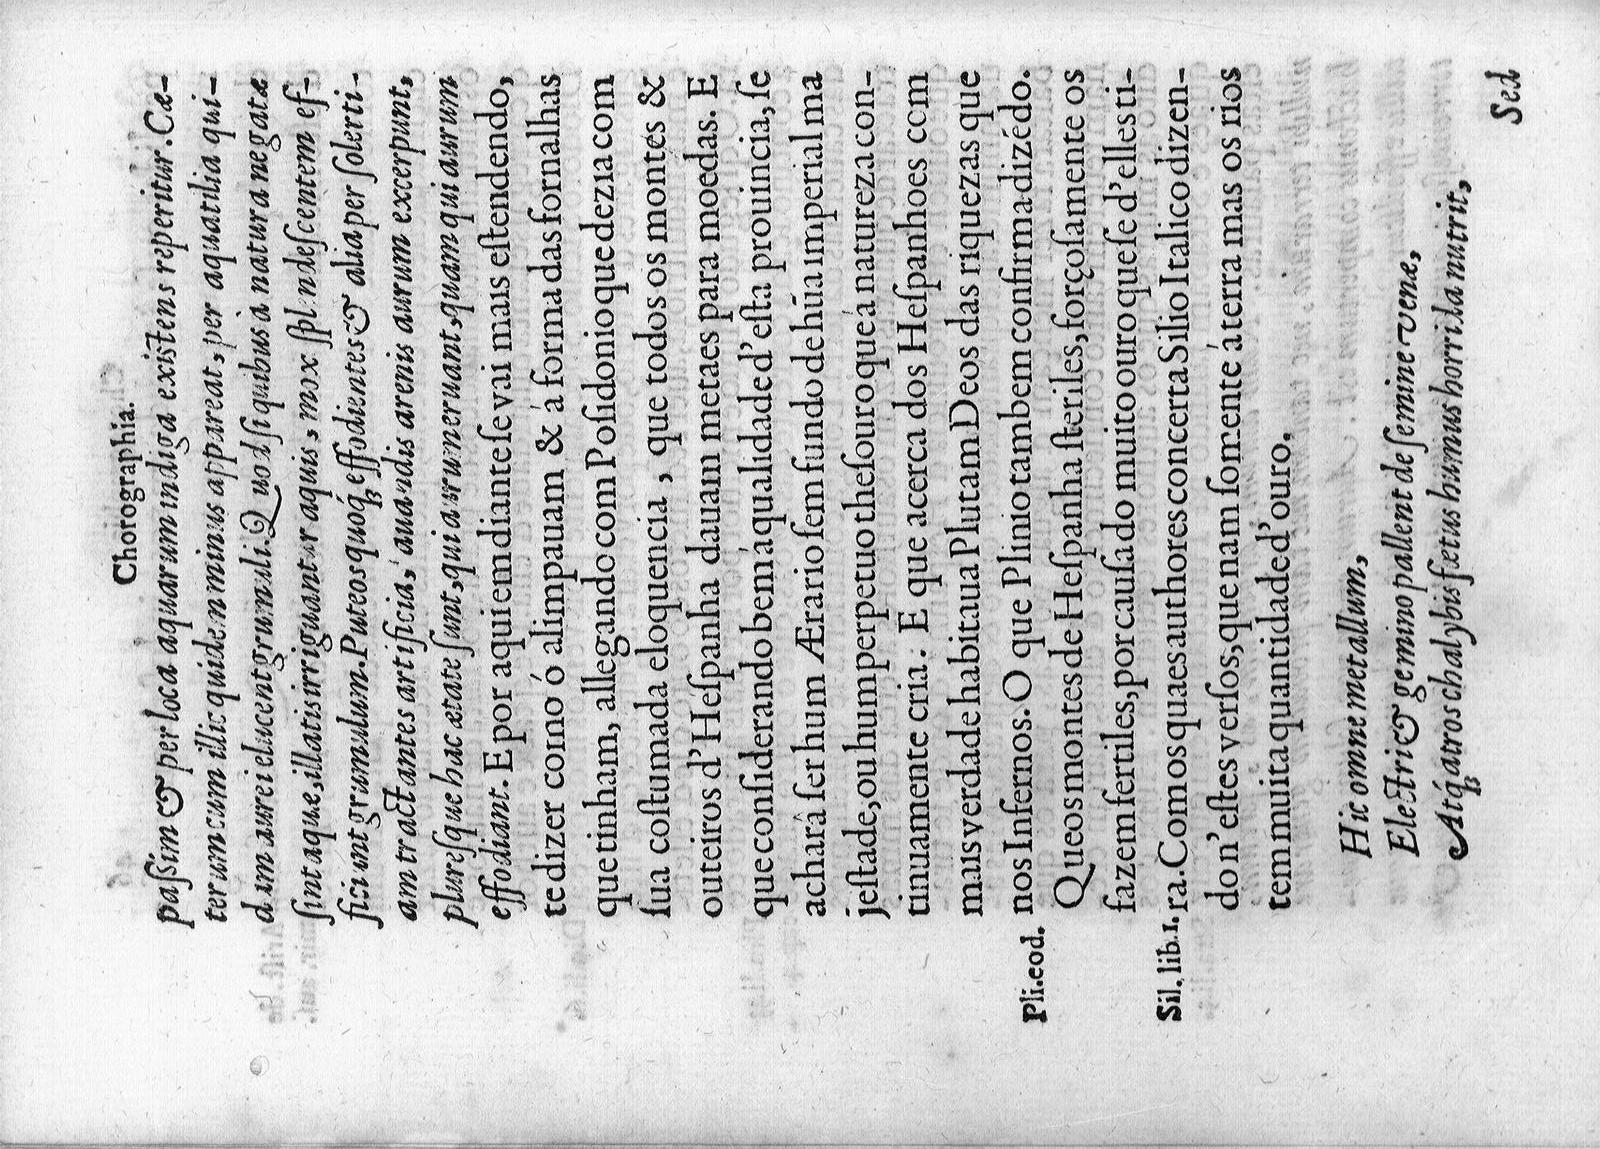 Chorographia.
paſsim & per loca aquarum indiga existens reperitur. Cæ-
terum cum illic quidem minus appareat, per aquatilia qui-
dam aurei elucent grumuli. Quod ſi quibus à natura negatæ
ſint aquæ, illatis irriguantur aquis, mox ſplendeſcentem ef-
ficiunt grumulum. Puteos quoq; effodientes & alia per ſolerti-
am tractantes artificia, auandis arenis aurum excerpunt,
plureſque hac ætate ſunt, qui aurum eruant, quam qui aurum
effodiant. E por aqui em diante ſe vai mais eſtendendo,
te dizer como ó alimpauam & á forma das fornalhas
que tinham, allegando com Poſidonio que dezia com
ſua coſtumada eloquencia, que todos os montes &
outeiros d'Heſpanha dauam metaes para moedas. E
que conſiderando bem á qualidade d'eſta prouincia, ſe
achará ſer hum Ærario ſem fundo de hũa imperial ma
jeſtade, ou hum perpetuo theſouro que á natureza con-
tinuamente cria. E que acerca dos Heſpanhoes com
mais verdade habitaua Plutam Deos das riquezas que
nos Infernos. O que Plinio tambem confirma dizédo.
Pli. eod.
Que os montes de Heſpanha ſteriles, forçoſamente os
fazem fertiles, por cauſa do muito ouro que ſe d'elles ti-
ra. Com os quaes authores concerta Silio Italico dizen-
Sil. lib. 1.
do n'eſtes verſos, que nam ſomente á terra mas os rios
tem muita quantidade d'ouro.
Hic omne metallum,
Electri & gemino pallent de ſemine venæ,
Atq; atros chalybis fætus humus horrida nutrit,
Sed